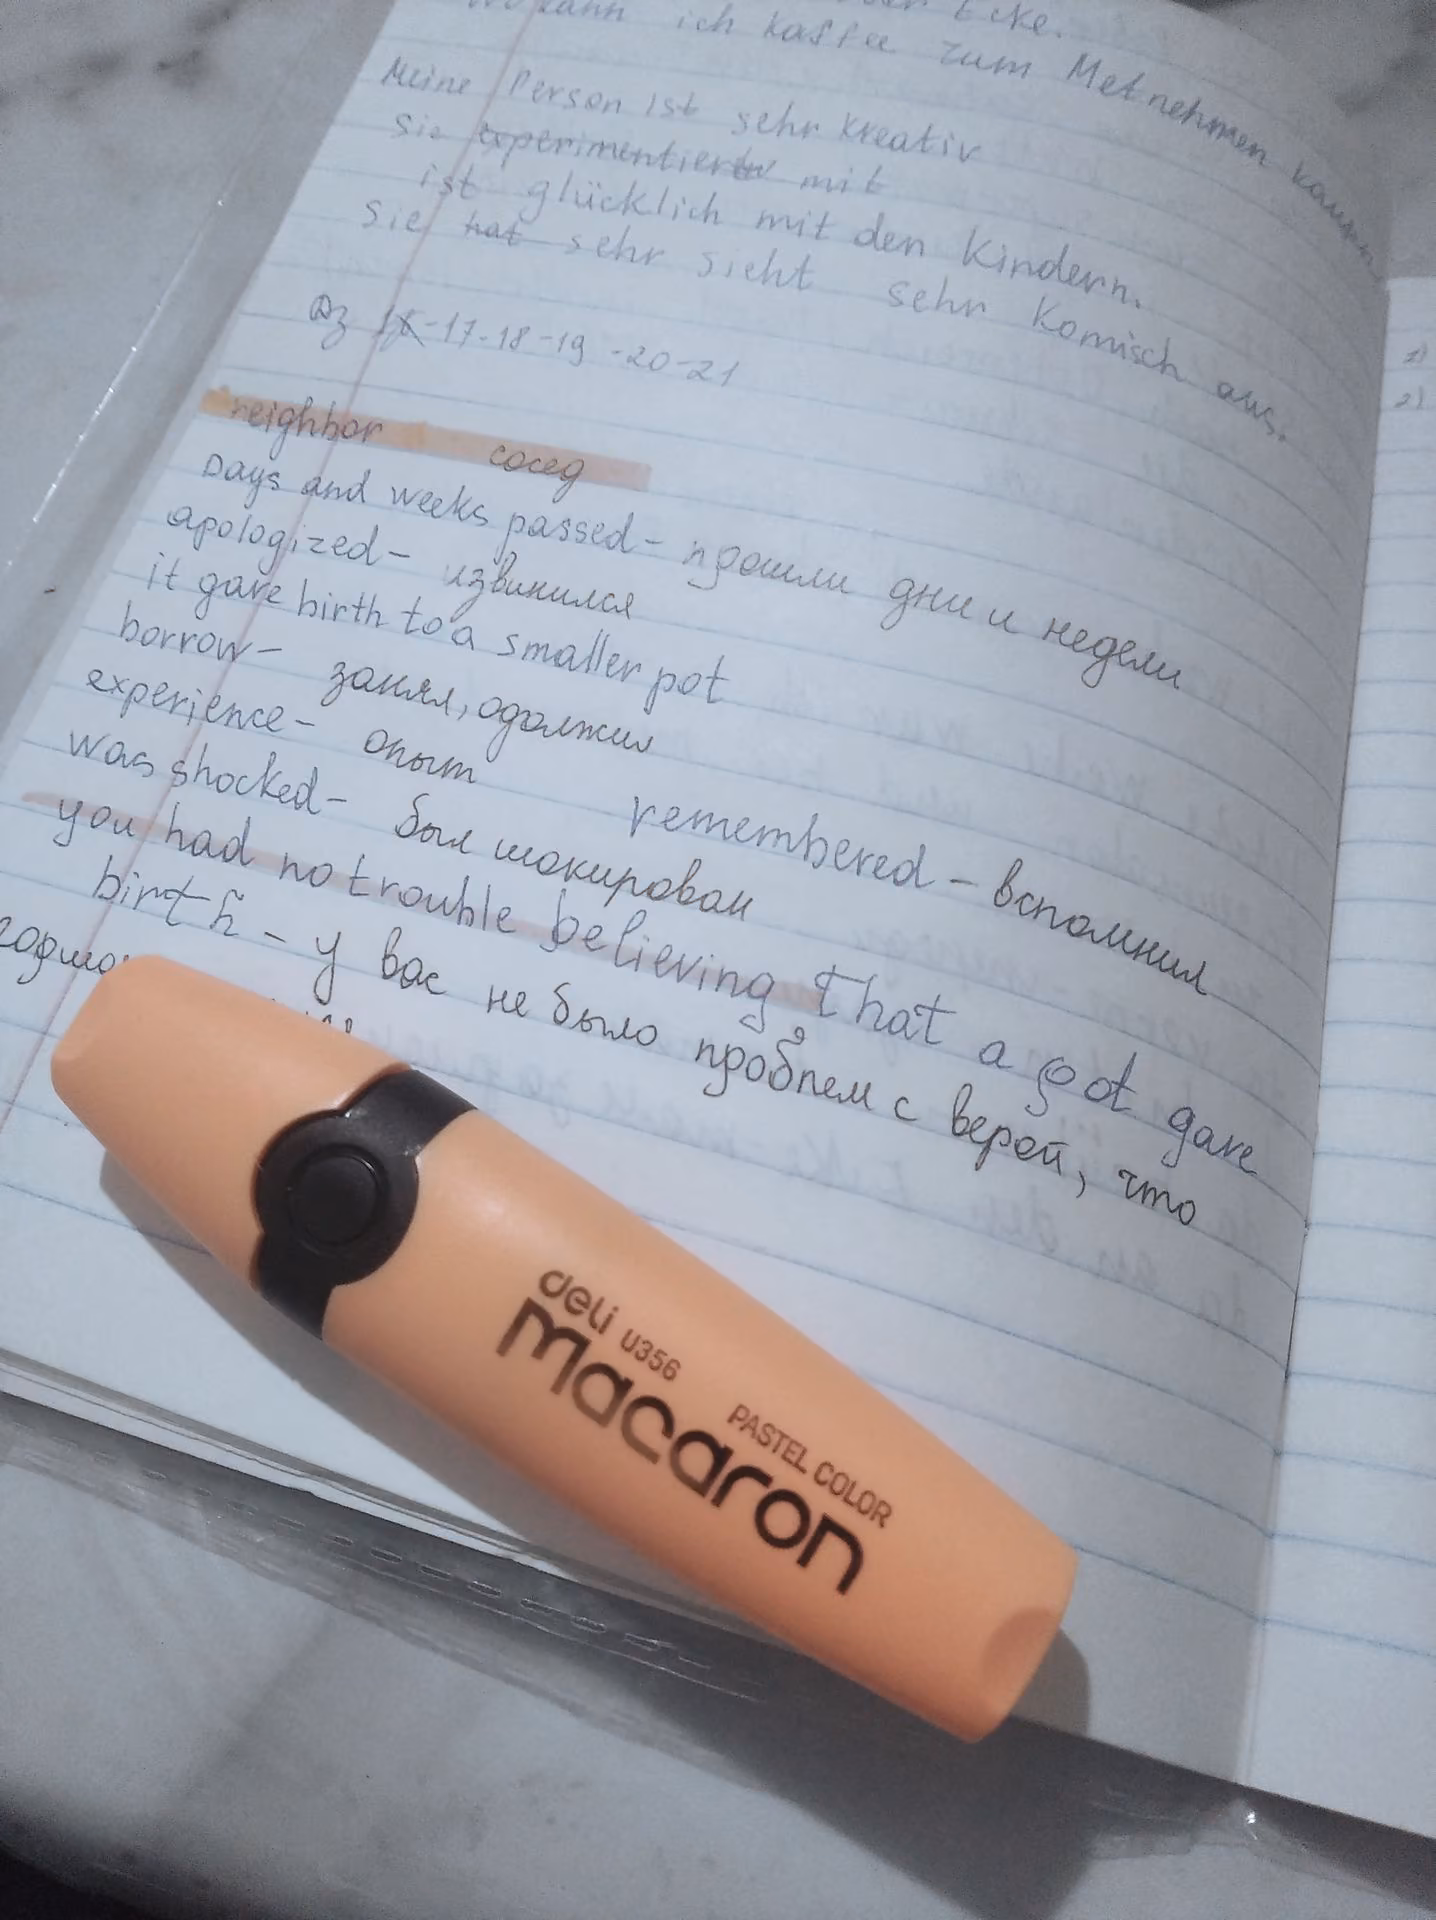 Ecke.
kann ich kaffee zum Metnehmen kaufen
Meine Person ist sehr kreativ
Sie experimentier mit
ist glücklich mit den Kindern.
Sie hat sehr sieht sehr komisch aus.
-17-18-19-20-21
neighbor сосед
Days and weeks passed- прошли дни и недели
apologized- извинился
it gave birth to a smaller pot
borrow- занял, одолжил
experience- опыт
remembered - вспомнил
was shocked- был шокирован
you had no trouble believing that a pot gave
birth - у вас не было проблем с верой, что
deli U356
PASTEL COLOR
macaron
1)
2)